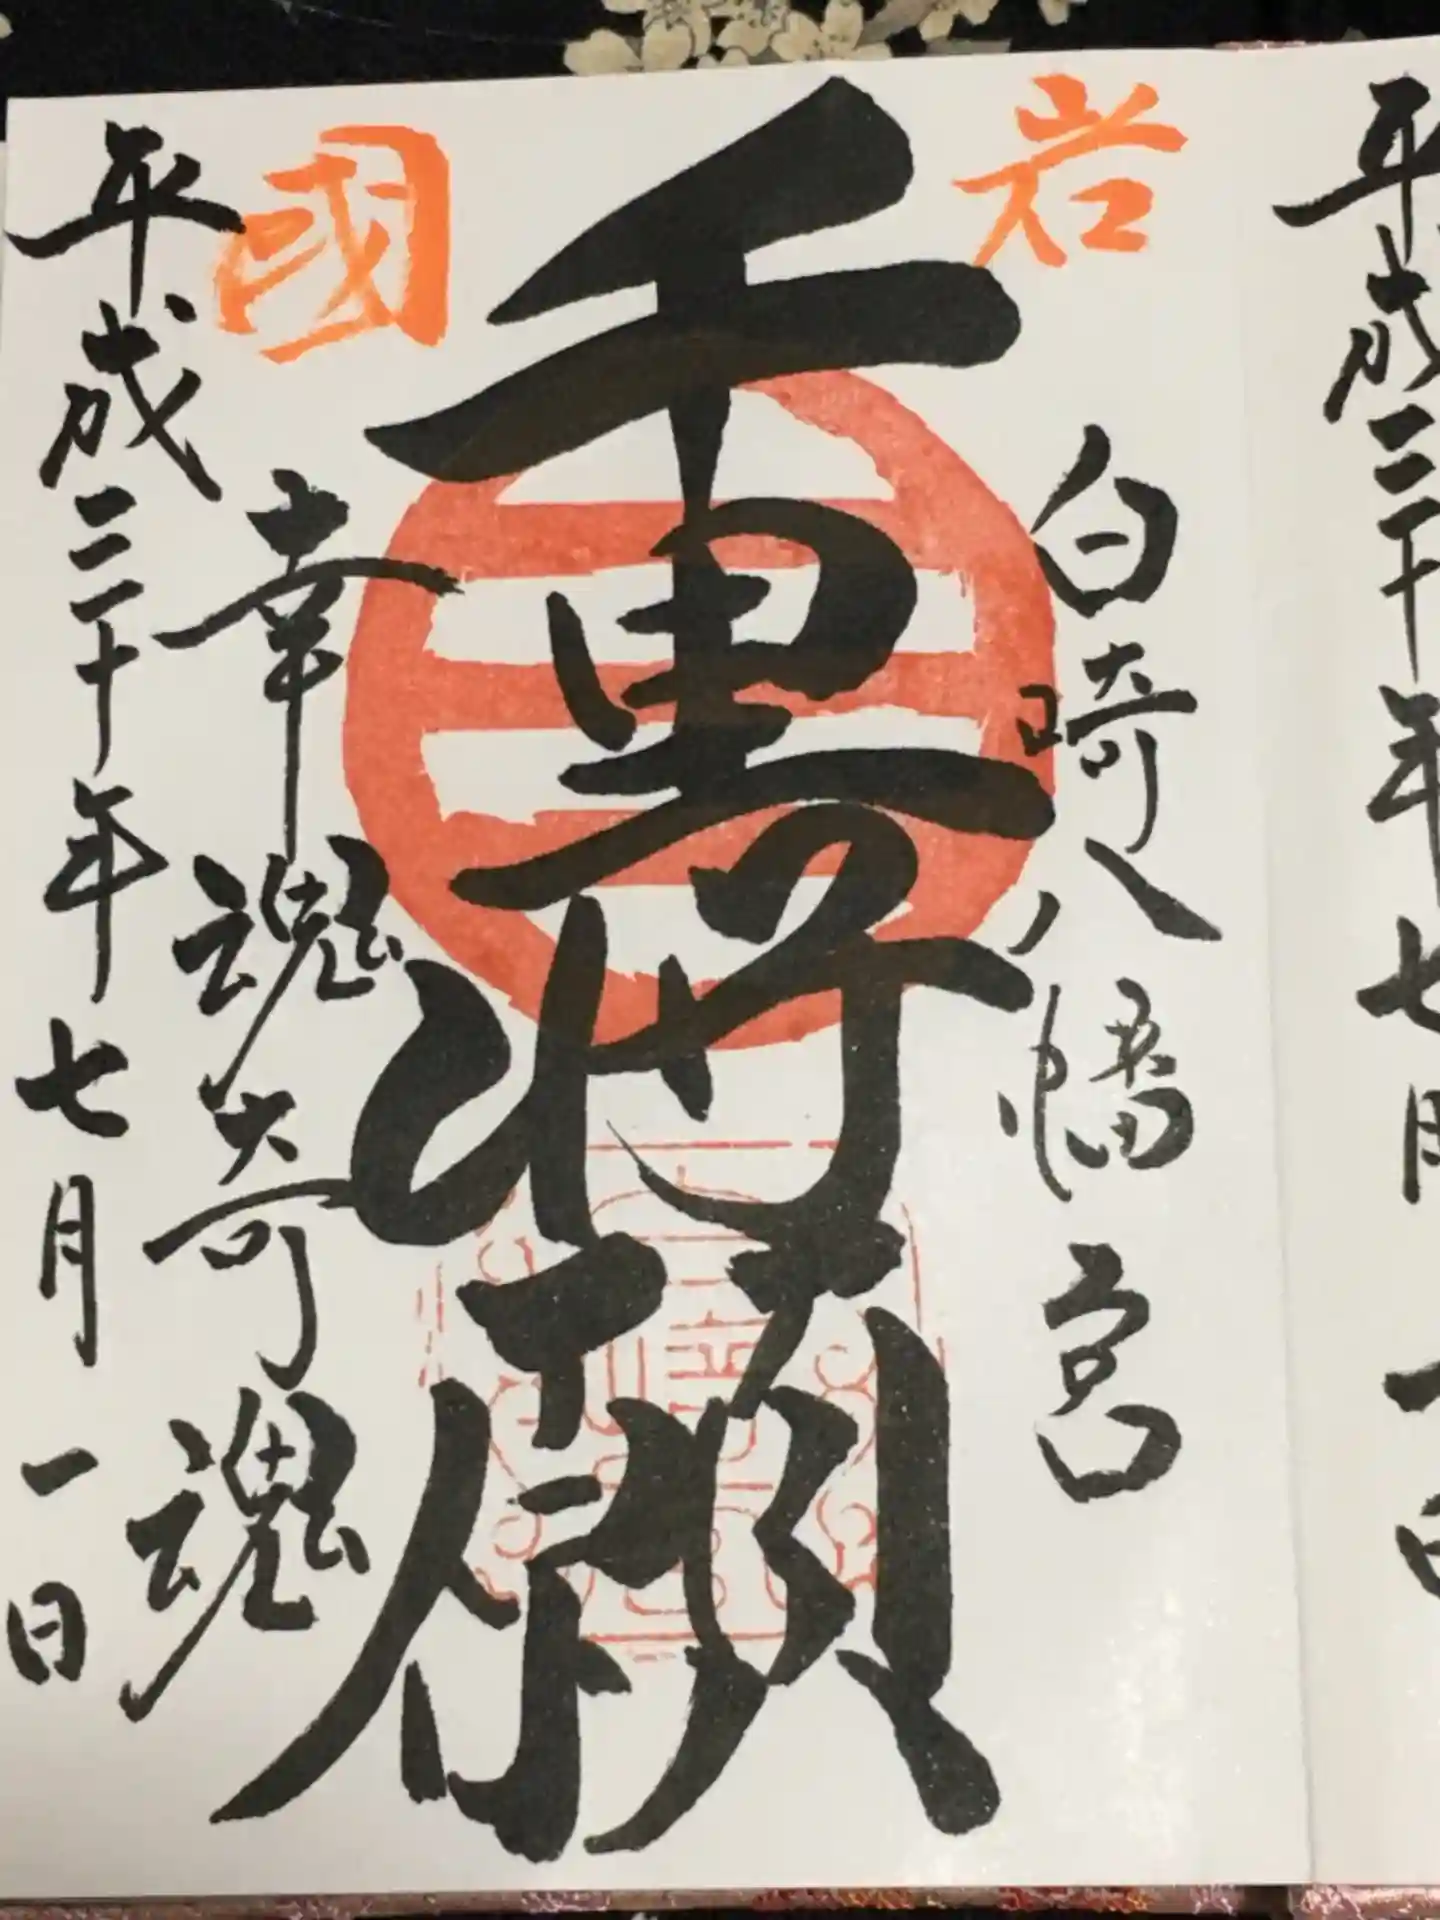 岩國
白崎八幡宮
重将願
幸魂奇魂
平成三十年七月一日
平成三十年七月一日